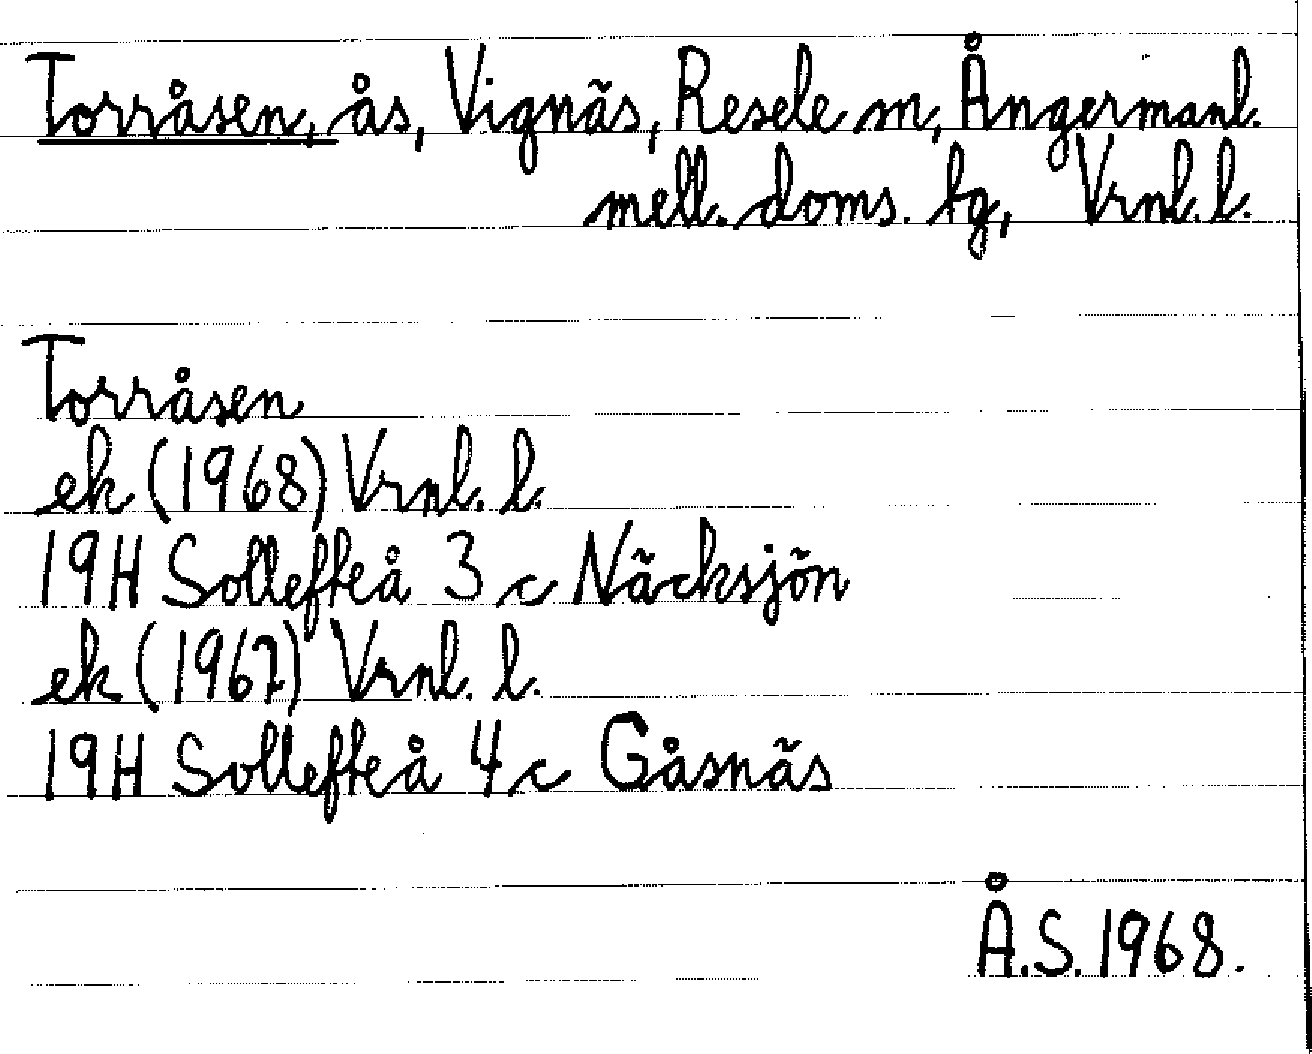 Torråsen, ås, Vignäs, Resele sn, Ångermanl.
mell. doms. tg, Vrnl. l.
Torråsen
ek (1968) Vrnl. l.
19H Sollefteå 3 c Näcksjön
ek (1967) Vrnl. l.
19H Sollefteå 4 c Gåsnäs
Å.S. 1968.